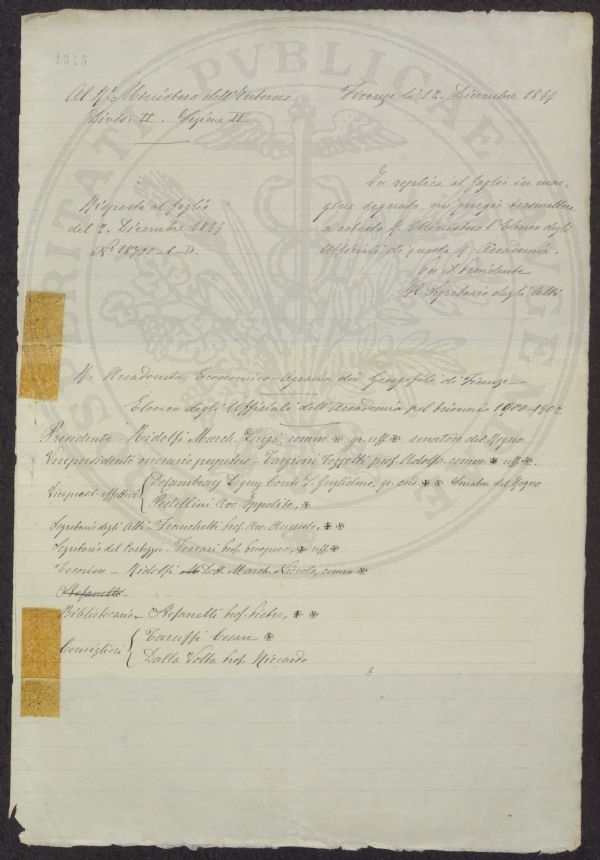 1345
PROSPERITATI PVBLICAE AVGENDAE
Al R. Ministero dell'Interno
Divis. II. Sezione II
Firenze li 12. Dicembre 1899
Risposta al foglio
del 2. Dicembre 1899
N. 18700-1-D.
In replica al foglio in mar-
gine segnato, mi pregio trasmettere
a cotesto R. Ministero l'Elenco degli
Ufficiali di questa R. Accademia.
Per il Presidente
Il Segretario degli Atti
R. Accademia Economico-Agraria dei Georgofili di Firenze
Elenco degli Ufficiali dell'Accademia pel triennio 1900-1902
Presidente - Ridolfi March. Luigi, comm. * gr. uff. * senatore del Regno
Vicepresidente onorario perpetuo - Targioni Tozzetti prof. Adolfo, comm. * uff. *.
Vicepresid. effettivi { Decambray Digny Conte S. Guglielmo, gr. cord. * * Senatore del Regno
Pestellini Avv. Ippolito, *
Segretario degli Atti - Franchetti prof. Avv. Augusto, * *
Segretario del Carteggio - Ferrari prof. Prospero, * uff. *
Tesoriere - Ridolfi Dott. March. Niccolo, comm. *
Stefanelli -
Bibliotecario - Stefanelli prof. Pietro, * *
Consiglieri { Taruffi Cesare *
Dalla Volta prof. Riccardo